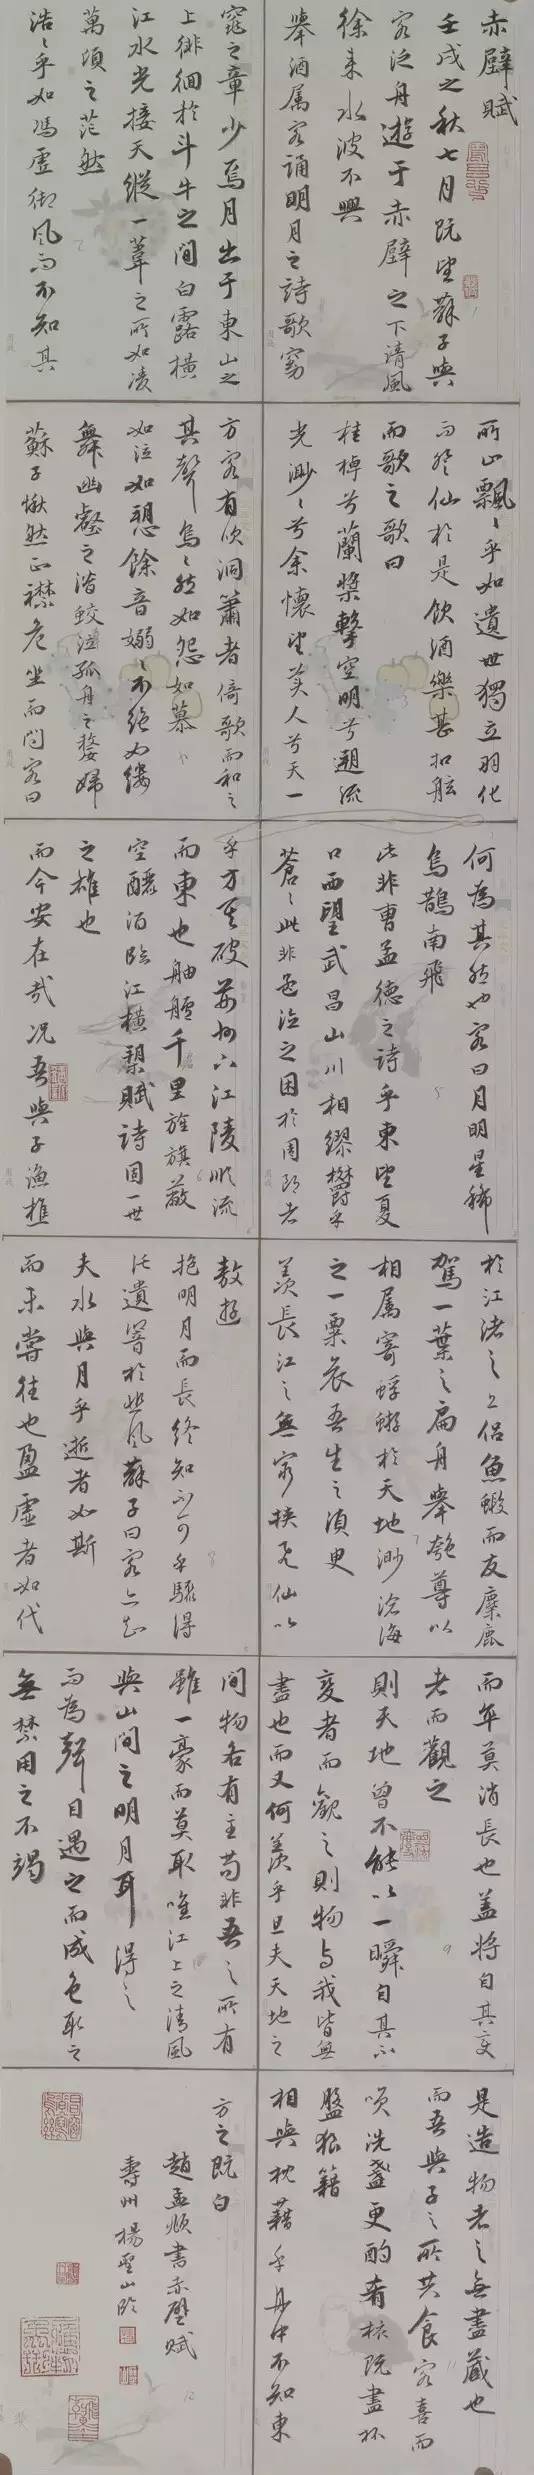 赤壁賦
壬戌之秋七月既望蘇子與
客泛舟遊于赤壁之下清風
徐来水波不興
舉酒属客誦明月之詩歌窈
窕之章少焉月出于東山之
上徘徊於斗牛之間白露橫
江水光接天縱一葦之所如凌
萬頃之茫然
浩〻乎如馮虛御風而不知其
所止飄〻乎如遺世獨立羽化
而登仙於是飲酒樂甚扣舷
而歌之歌曰
桂棹兮蘭槳擊空明兮遡流
光渺〻兮余懷望美人兮天一
方客有吹洞簫者倚歌而和之
其聲烏〻然如怨如慕
如泣如愬餘音嫋〻不絕如縷
舞幽壑之潛蛟泣孤舟之嫠婦
蘇子愀然正襟危坐而問客曰
何為其然也客曰月明星稀
烏鵲南飛
此非曹孟德之詩乎東望夏
口西望武昌山川相繆欝乎
蒼〻此非孟德之困於周郎者
乎方其破荊州下江陵順流
而東也舳艫千里旌旗蔽
空釃酒臨江橫槊賦詩固一世
之雄也
而今安在哉況吾與子漁樵
於江渚之上侶魚蝦而友麋鹿
駕一葉之扁舟舉匏尊以
相属寄蜉蝣於天地渺滄海
之一粟哀吾生之須臾
羨長江之無窮挟飛仙以
敖遊
抱明月而長終知不可乎驟得
託遺響於悲風蘇子曰客亦知
夫水與月乎逝者如斯
而未嘗往也盈虛者如代
而卒莫消長也蓋將自其变
者而觀之
則天地曾不能以一瞬自其不
变者而觀之則物与我皆無
盡也而又何羨乎且夫天地之
間物各有主苟非吾之所有
雖一豪而莫取唯江上之清風
與山間之明月耳得之
而為聲目遇之而成色取之
無禁用之不竭
是造物者之無盡藏也
而吾與子之所共食客喜而
咲洗盞更酌肴核既盡杯
盤狼籍
相與枕藉乎舟中不知東
方之既白
趙孟頫書赤壁賦
壽州楊聖山臨